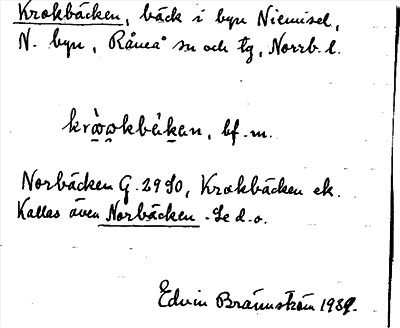 Krokbäcken, bäck i byn Niemisel,
N. byn, Råneå sn och tg, Norrb. l.
krò̭o̭kbä̀ḵen, bf. m.
Norbäcken G. 2950, Krokbäcken ek.
Kallas även Norbäcken. Se d. o.
Edvin Brännström 1939.